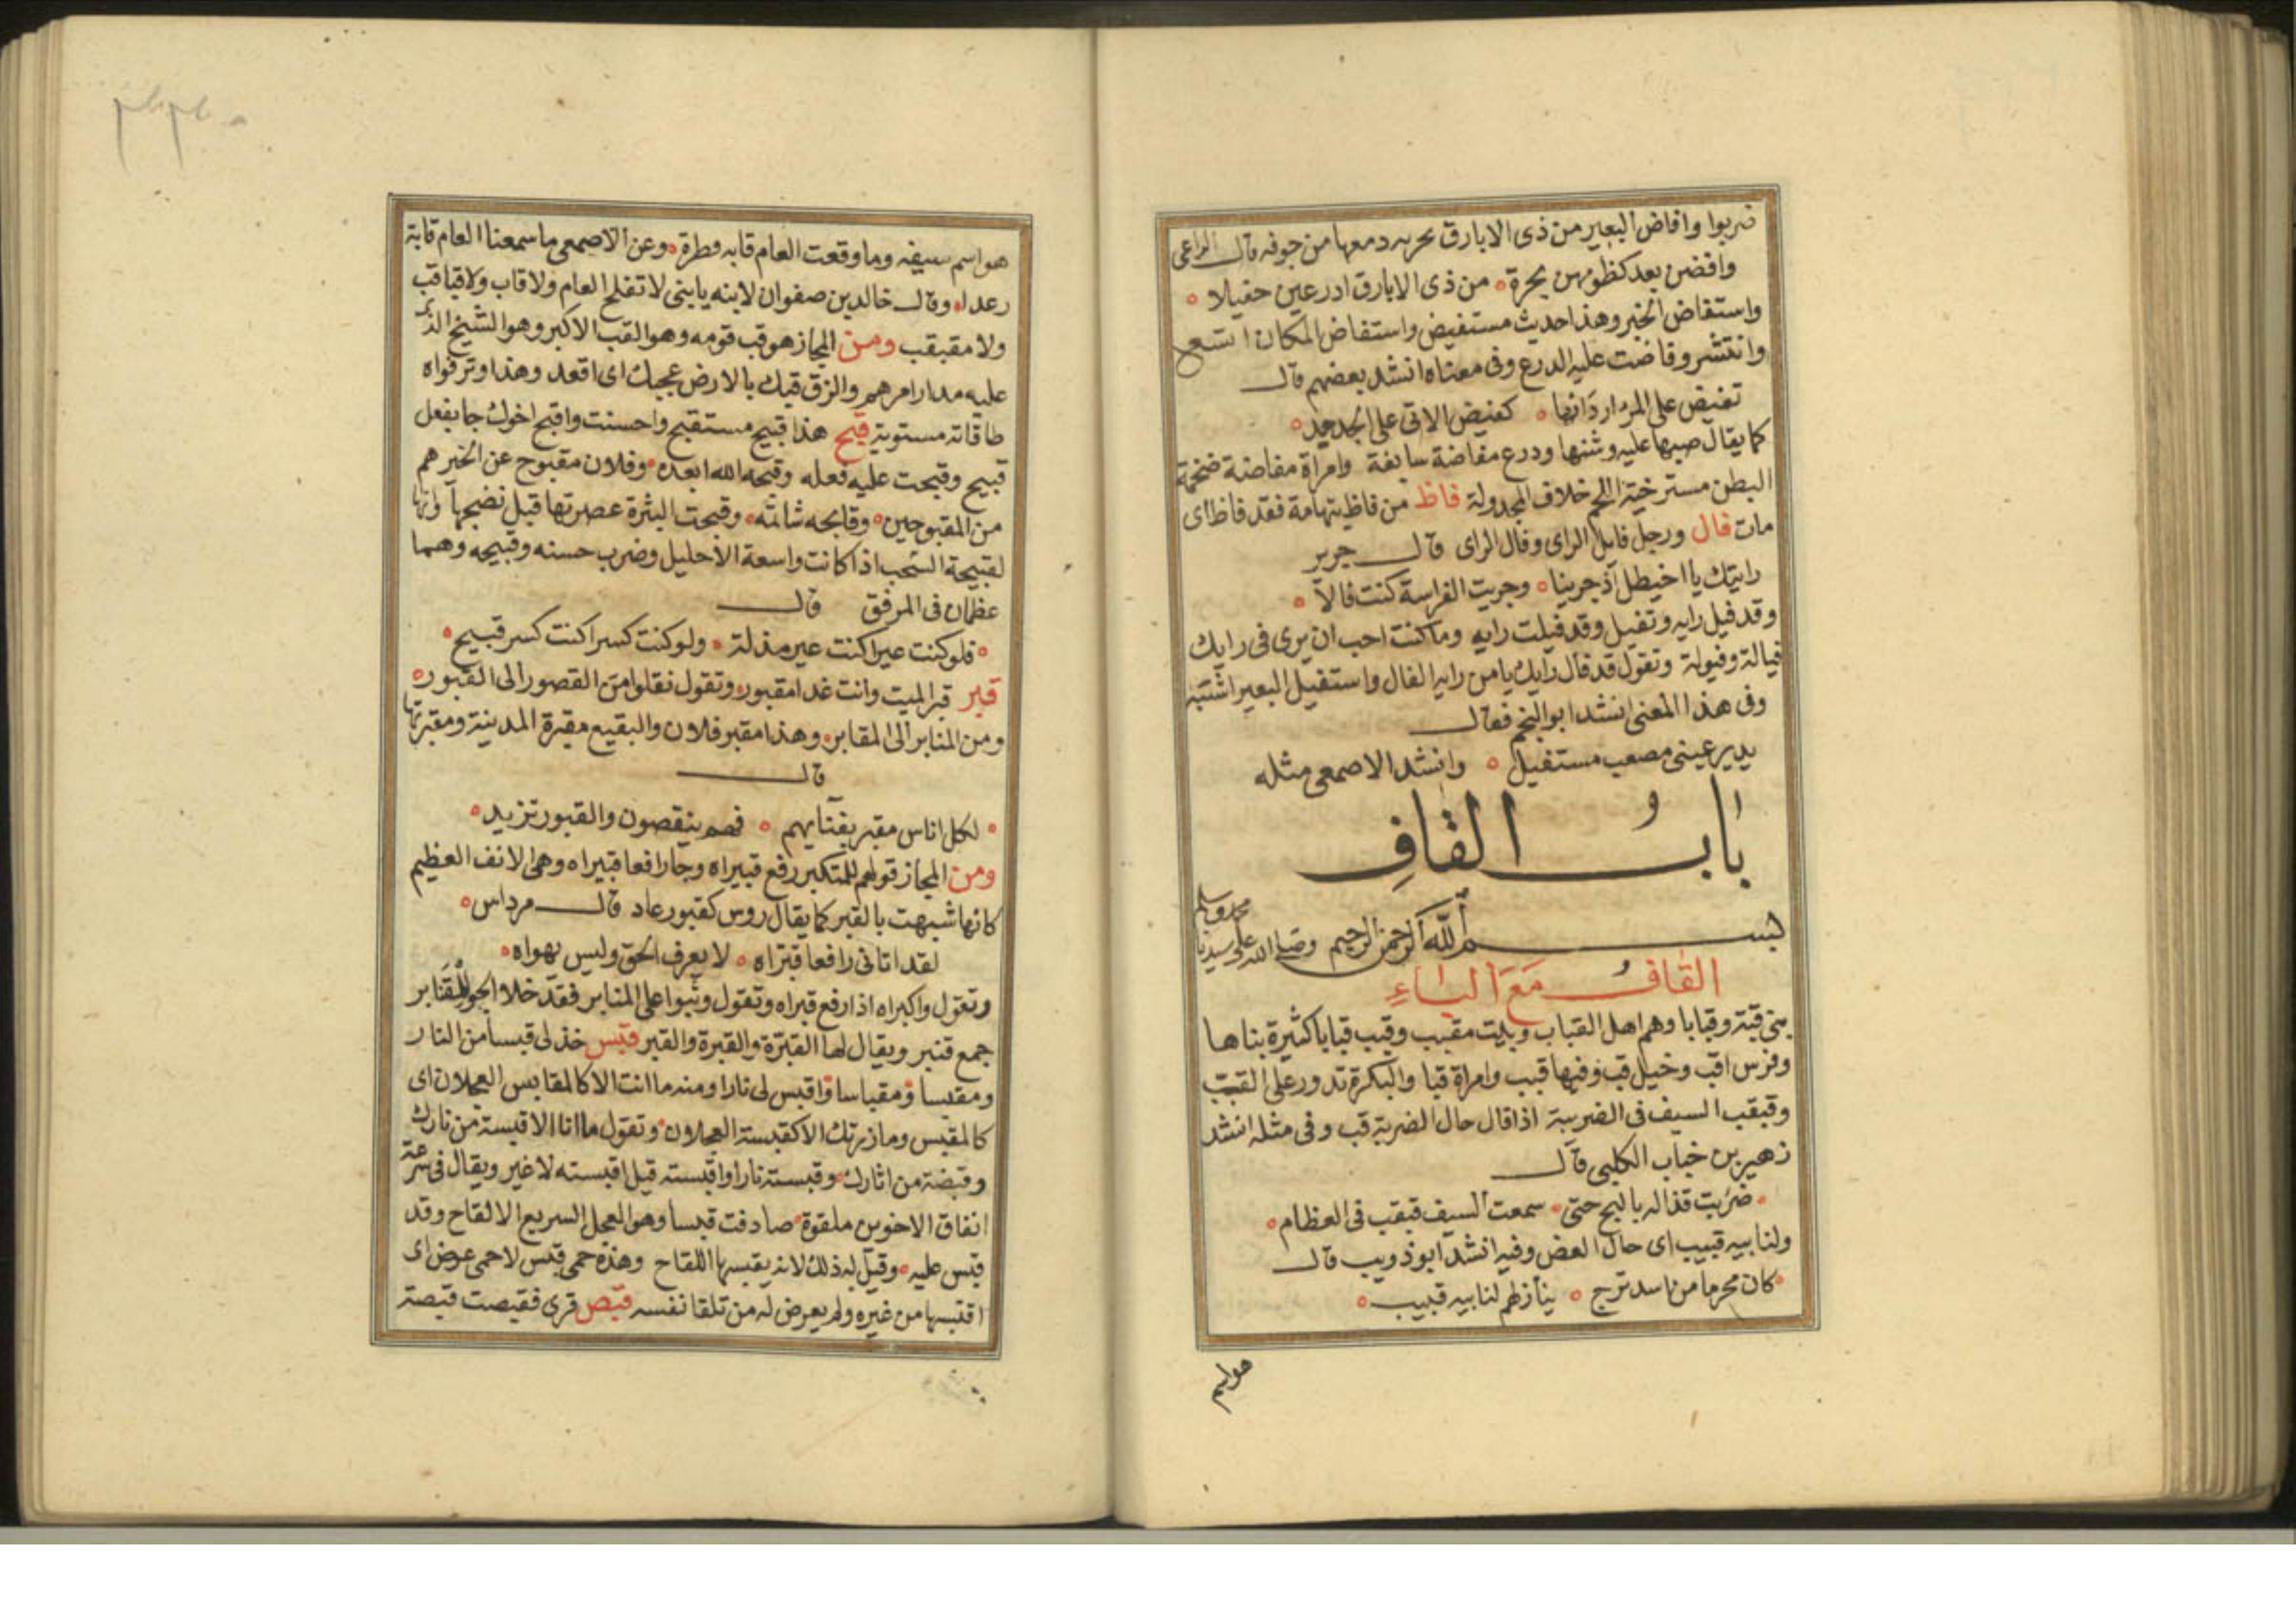 ضربوا وافاض البعير من ذى الابارق بحربه دمعها من جوفه قال الراعى
وافضن بعد كظومهن بجرة من ذى الابارق ادرعين حقيلا
واستفاض الخبر وهذا حديث مستفيض واستفاض المكان اتسع
وانتشر وفاضت عليه الدرع وفى معناه انشد بعضهم قال
تفيض على المرء اردانها كفيض الاتى على الجدجد
كما يقال صبها عليه وشنها ودرع مفاضة سابغة وامراة مفاضة ضخمة
البطن مسترخية اللحم خلاف المجدولة فاظ من فاظ بتهامة فقد فاظ اى
مات فال ورجل فايل الراى وفال الراى قال جرير
رايتك يا اخيطل اذ جرينا وجريت الفراسة كنت فالا
وقد فيل رايه وتفيل وقد فيلت رايه وما كنت احب ان يرى فى رايك
فيالة وفيولة وتقول قد فال رايك يا من رايه الفال واستفيل البعير اشتبه
وفى هذا المعنى انشد ابو النجم فقال
يدير عينى مصعب مستفيل وانشد الاصمعى مثله
باب القاف
بسم الله الرحمن الرحيم وصلى الله على سيدنا محمد وسلم
القاف مع الباء
بنى قبة وقبابا وهم اهل القباب وبيت مقبب وقبب قبابا كثيرة بناها
وفرس اقب وخيل قب وفيها قبب وامراة قبا والبكرة تدور على القب
وقبقب السيف فى الضريبة اذا قال حال الضربة قب وفى مثله انشد
زهير بن خباب الكلبى قال
ضربت قذاله بالبج حتى سمعت السيف قبقب فى العظام
ولنابيه قبيب اى حال العض وفيه انشد ابو ذويب قال
كان محرما من اسد ترج ينازلهم لنابيه قبيب
هو اسم
هو اسم سيفه وما وقعت العام قابه قطرة وعن الاصمعى ما سمعنا العام قابة
رعدا وقال خالد بن صفوان لابنه يا بنى لا تفلح العام ولا قاب ولا قباقب
ولا مقبقب ومن المجاز هو قب قومه وهو القب الاكبر وهو الشيخ الذى
عليه مدار امرهم والزق قبك بالارض عجبك اى اقعد وهذا وتر قواه
طاقاته مستوية قبح هذا قبيح مستقبح واحسنت واقبح اخوك جا بفعل
قبيح وقبحت عليه فعله وقبحه الله ابعده وفلان مقبوح عن الخير هم
من المقبوحين وقابحه شاتمه وقبحت البثرة عصرتها قبل نضجها وانها
لقبيحة الشخب اذا كانت واسعة الاحليل وضرب حسنه وقبيحه وهما
عظمان فى المرفق قال
فلو كنت عيرا كنت عير مذلة ولو كنت كسرا كنت كسر قبيح
قبر قبر الميت وانت غدا مقبور وتقول نقلوا من القصور الى القبور
ومن المنابر الى المقابر وهذا مقبر فلان والبقيع مقبرة المدينة ومقبرتها
قال
لكل اناس مقبر بفنايهم فهم ينقصون والقبور تزيد
ومن المجاز قولهم للمتكبر رفع قبيراه وجا رافعا قبيراه وهى الانف العظيم
كانها شبهت بالقبر كما يقال روس كقبور عاد قال مرداس
لقد اتانى رافعا قبراه لا يعرف الحق وليس يهواه
وتقول واكبراه اذا رفع قبراه وتقول وثبوا على المنابر فقد خلا الجو للقنابر
جمع قنبر ويقال لها القبرة والقبرة والقبر قبس خذ لى قبسا من النار
ومقبسا ومقباسا واقبس لى نارا ومنه ما انت الا كالمقابس العجلان اى
كالمقبس وما زرتك الا كقبسة العجلان وتقول ما انا الا قبسة من نارك
وقبضة من اثارك وقبسته نارا واقبسته قيل اقبسته لا غير ويقال فى سرعة
اتفاق الاخوين ملقوة صادفت قبسا وهو العجل السريع الالقاح وقد
قبس عليه وقيل له ذلك لانه يقبسها اللقاح وهذه حمى قبس لا حمى عرض اى
اقتبسها من غيره ولم يعرض له من تلقا نفسه قبص قرى فقبصت قبصة